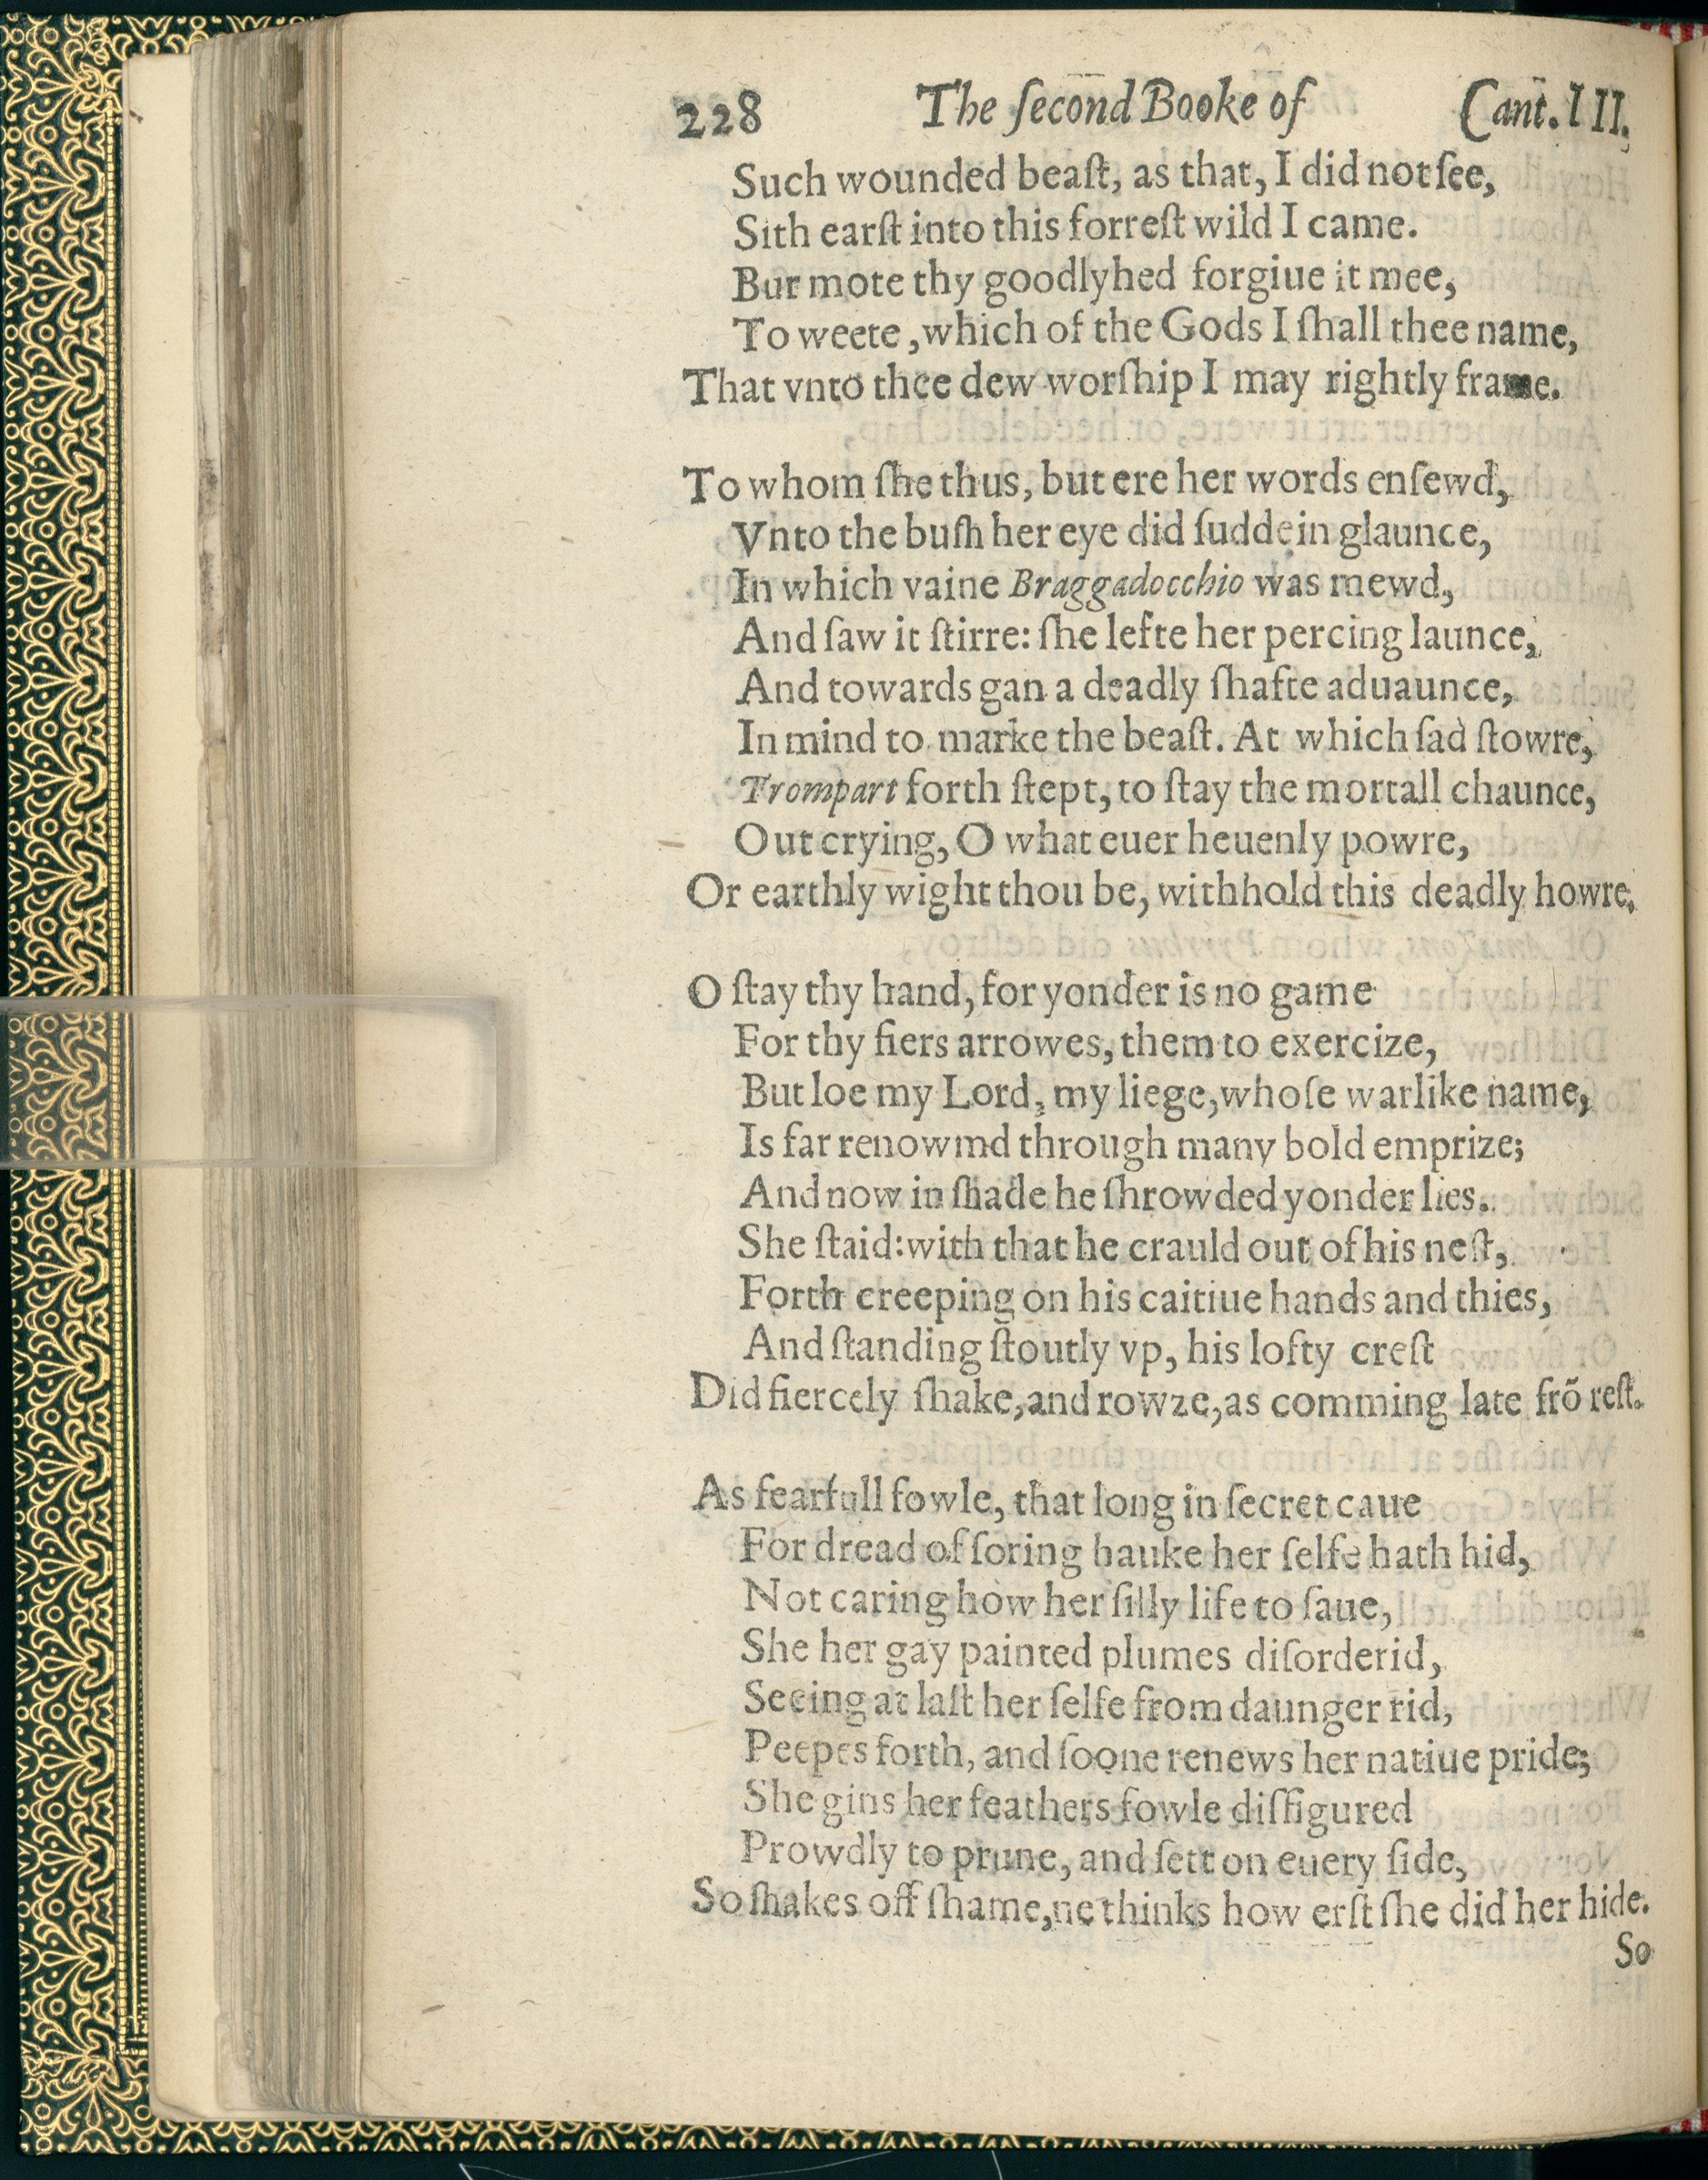 228 The ſecond Booke of Cant. III.
Such wounded beaſt, as that, I did not ſee,
Sith earſt into this forreſt wild I came.
Bur mote thy goodlyhed forgiue it mee,
To weete, which of the Gods I ſhall thee name,
That vnto thee dew worſhip I may rightly frame.
To whom ſhe thus, but ere her words enſewd,
Vnto the buſh her eye did ſuddein glaunce,
In which vaine Braggadocchio was mewd,
And ſaw it ſtirre: ſhe lefte her percing launce,
And towards gan a deadly ſhafte aduaunce,
In mind to marke the beaſt. At which ſad ſtowre,
Trompart forth ſtept, to ſtay the mortall chaunce,
Out crying, O what euer heuenly powre,
Or earthly wight thou be, withhold this deadly howre.
O ſtay thy hand, for yonder is no game
For thy fiers arrowes, them to exercize,
But loe my Lord, my liege, whoſe warlike name,
Is far renowmd through many bold emprize;
And now in ſhade he ſhrowded yonder lies.
She ſtaid: with that he crauld out of his neſt,
Forth creeping on his caitiue hands and thies,
And ſtanding ſtoutly vp, his lofty creſt
Did fiercely ſhake, and rowze, as comming late frõ reſt.
As fearfull fowle, that long in ſecret caue
For dread of ſoring hauke her ſelfe hath hid,
Not caring how her ſilly life to ſaue,
She her gay painted plumes diſorderid,
Seeing at laſt her ſelfe from daunger rid,
Peepes forth, and ſoone renews her natiue pride;
She gins her feathers fowle diſfigured
Prowdly to prune, and ſett on euery ſide,
So ſhakes off ſhame, ne thinks how erſt ſhe did her hide.
So